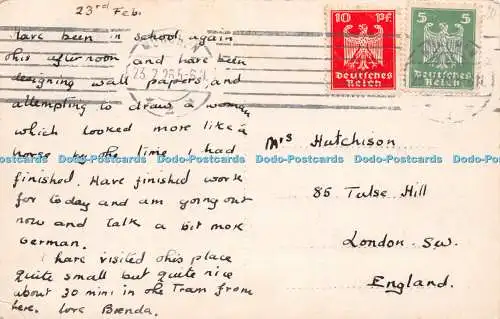 23rd Feb.
Have been in school again
this afternoon and have been
designing wall papers, and
attempting to draw a woman
which looked more like a
horse by the time I had
finished. Have finished work
for today and am going out
now and talk a bit more
German.
I have visited this place
quite small but quite nice
about 30 mins in the Tram from
here. Love Brenda.
10 Pf.
Deutsches
Reich
5 5
Deutsches
Reich
23.2.26.5-6
Mrs Hutchison
85 Tulse Hill
London. S.W.
England.
Dodo-Postcards Dodo-Postcards Dodo-Postcards Dodo-Postcards Dodo-Postcards Dodo-Postcards